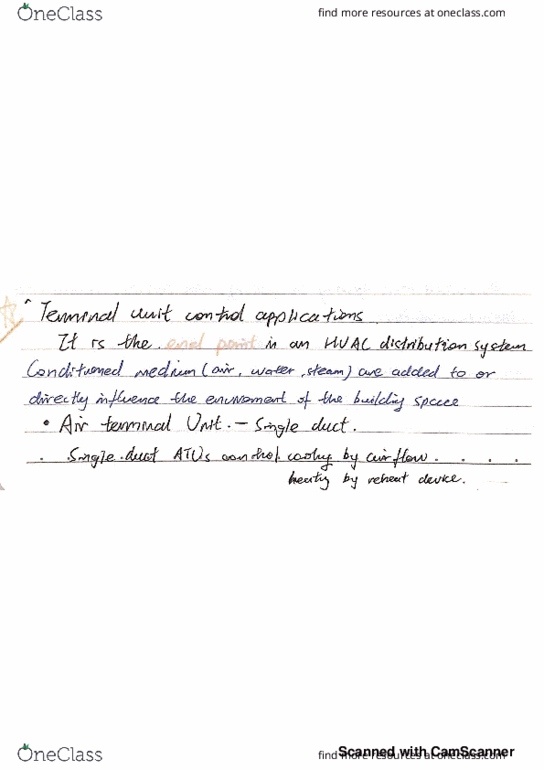 OneClass
find more resources at oneclass.com
^ Terminal unit control applications
It is the end point in an HVAC distribution system
Conditioned medium (air, water, steam) are added to or
directly influence the enviroment of the building space
• Air terminal Unit. – Single duct.
. Single duct ATUs control cooling by airflow . . . .
heating by reheat device.
OneClass
find more resources at oneclass.com
Scanned with CamScanner